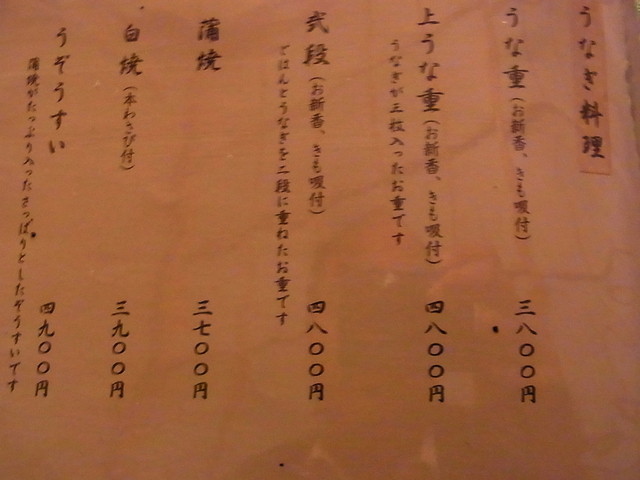 うなぎ料理
うな重(お新香、きも吸付)
三八〇〇円
上うな重(お新香、きも吸付)
四八〇〇円
うなぎが三枚入ったお重です
弐段(お新香、きも吸付)
四八〇〇円
ごはんとうなぎを二段に重ねたお重です
蒲焼
三七〇〇円
白焼(本わさび付)
三九〇〇円
うぞうすい
四九〇〇円
蒲焼がたっぷり入ったさっぱりとしたぞうすいです